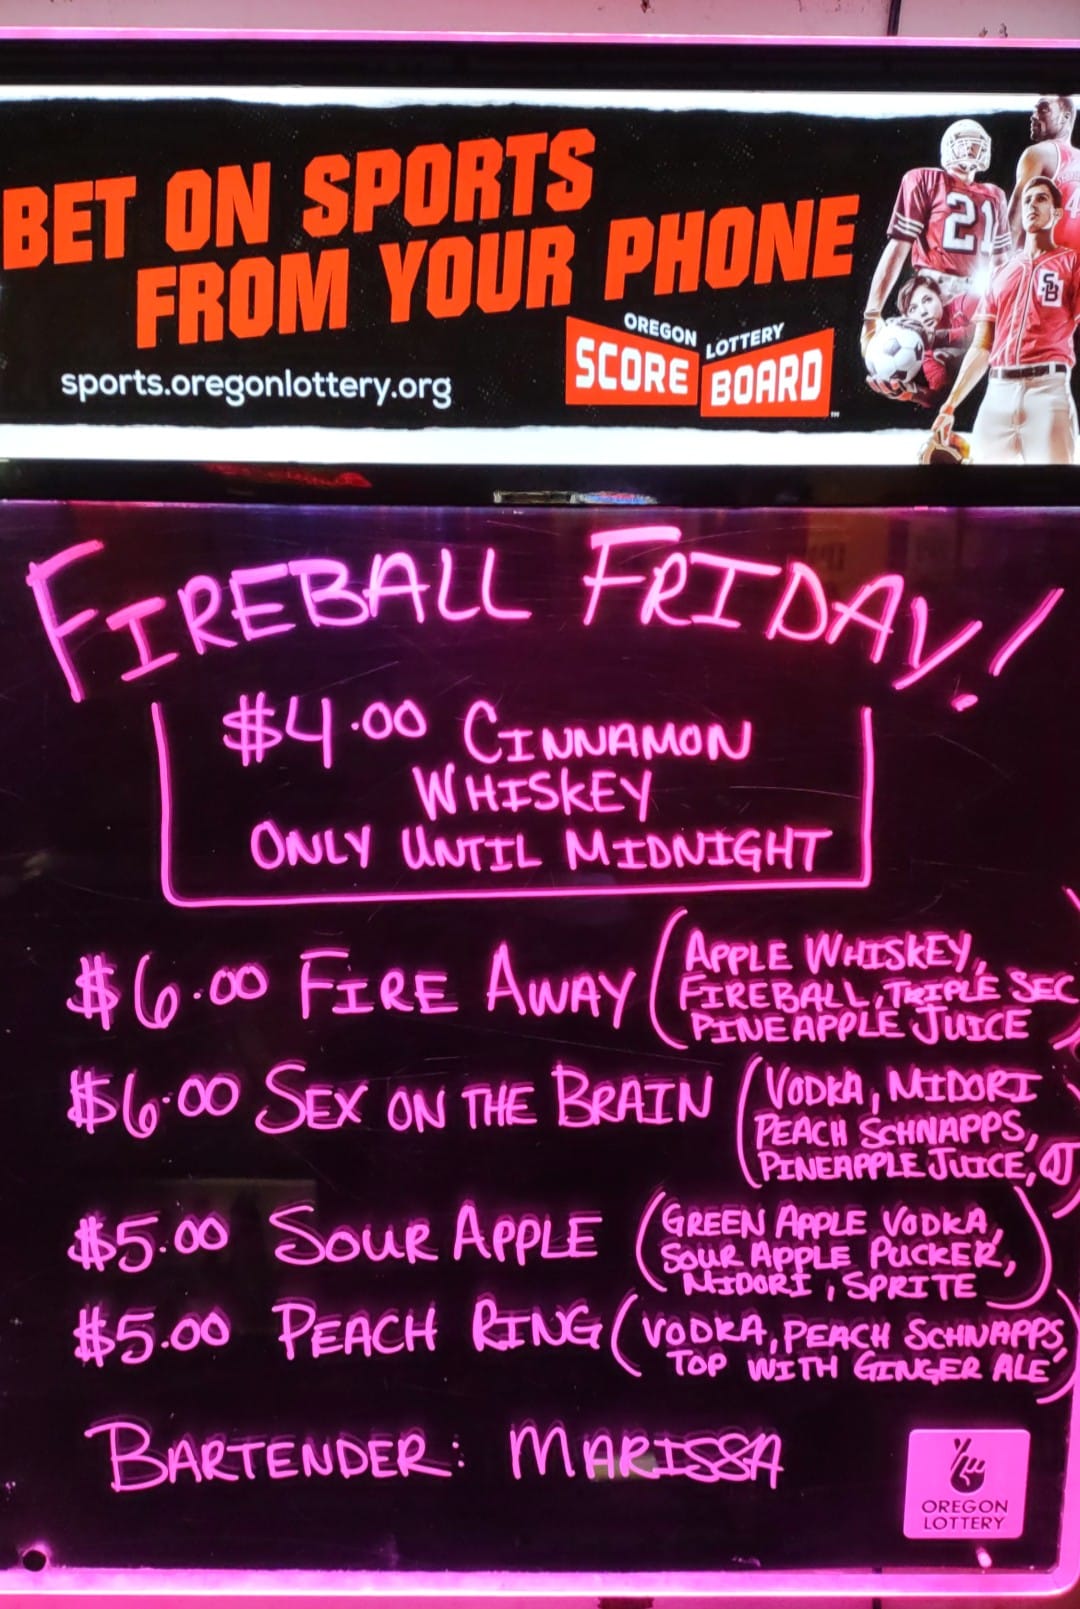 BET ON SPORTS
FROM YOUR PHONE
sports.oregonlottery.org
OREGON LOTTERY
SCORE BOARD
™
21
4
SB
FIREBALL FRIDAY!
$4.00 CINNAMON
WHISKEY
ONLY UNTIL MIDNIGHT
$6.00 FIRE AWAY (APPLE WHISKEY,
FIREBALL, TRIPLE SEC
PINEAPPLE JUICE)
$6.00 SEX ON THE BRAIN (VODKA, MIDORI
PEACH SCHNAPPS,
PINEAPPLE JUICE, OJ)
$5.00 SOUR APPLE (GREEN APPLE VODKA,
SOUR APPLE PUCKER,
MIDORI, SPRITE)
$5.00 PEACH RING (VODKA, PEACH SCHNAPPS,
TOP WITH GINGER ALE)
BARTENDER: MARISSA
OREGON
LOTTERY